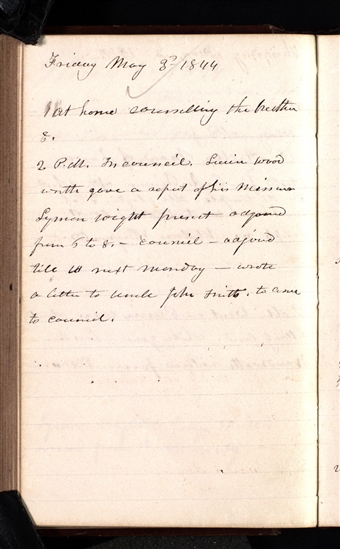 Friday May 3d 1844
At home counselling the brethren
&.
2 P.M. In council. Lucien wood
worth gave a report of his Mission
Lyman wight present adjound
from 5 to 8 — council — adjoind
till next monday — wrote
a letter to uncle John Smith, to come
to council.